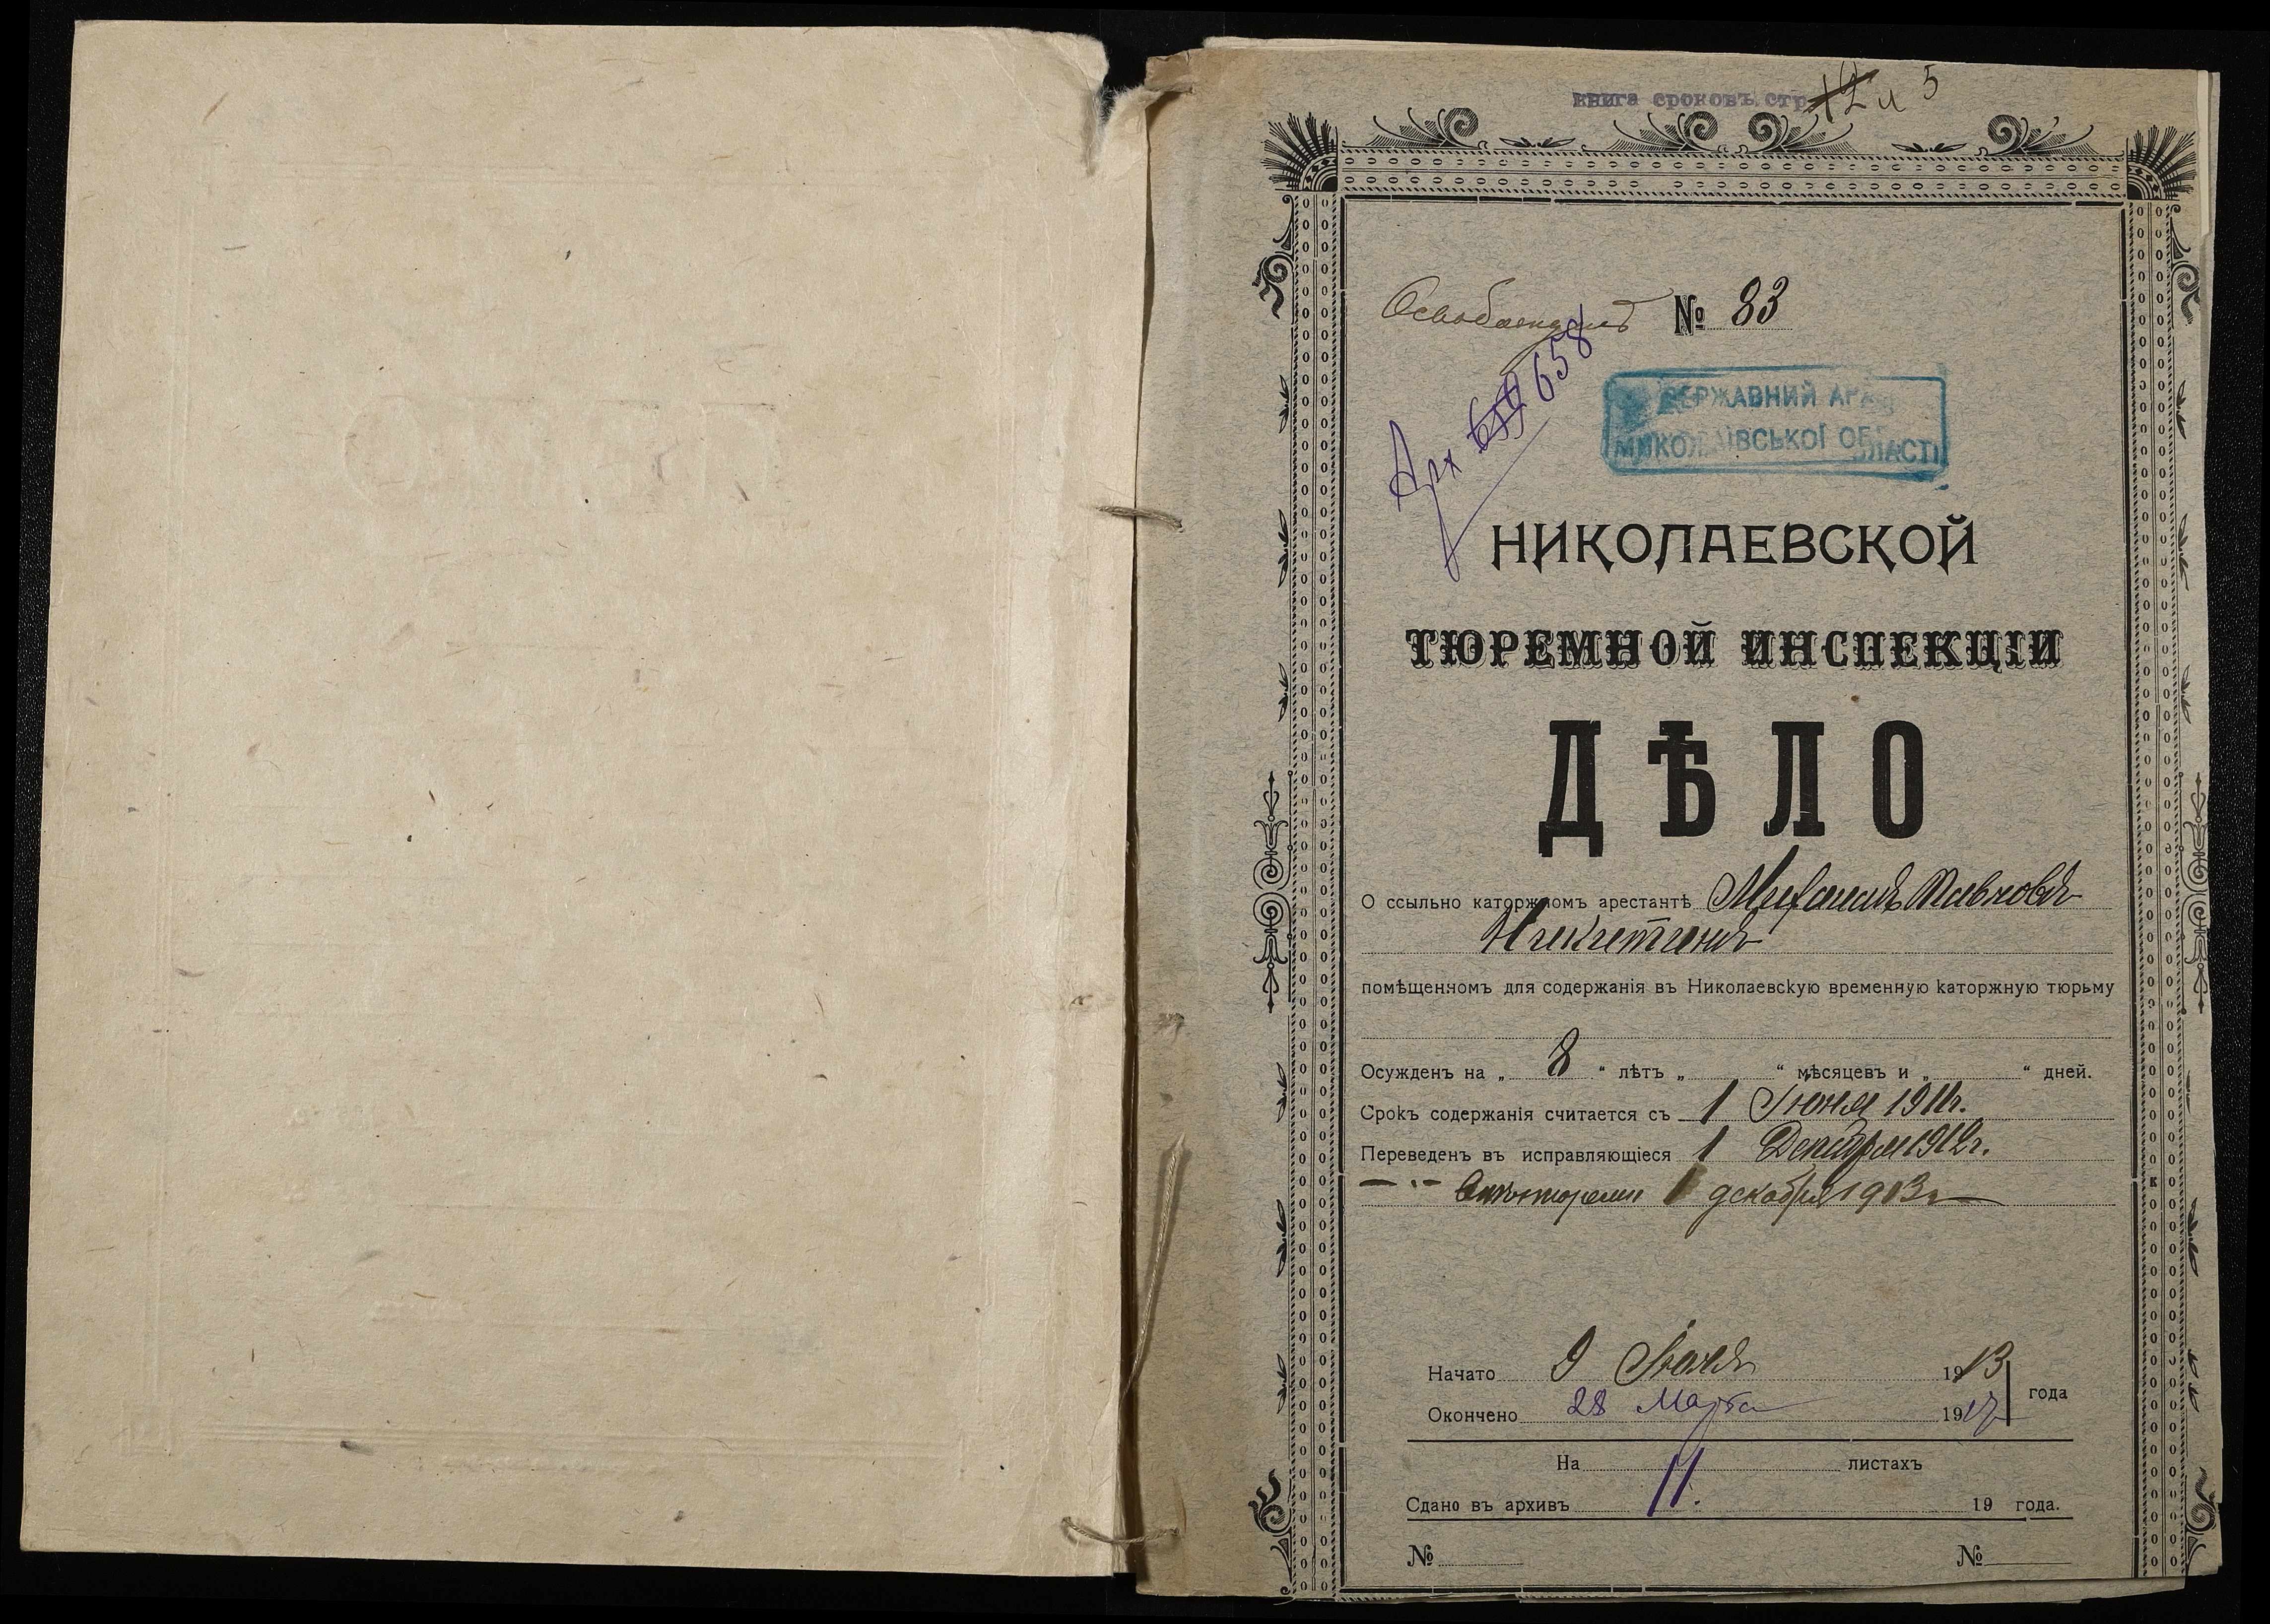 книга сроковъ стр. 12 и 5
Освобожденъ № 83
Арх 658
ДЕРЖАВНИЙ АРХІВ
МИКОЛАЇВСЬКОЇ ОБЛАСТІ
НИКОЛАЕВСКОЙ
ТЮРЕМНОЙ ИНСПЕКЦІИ
ДѢЛО
О ссыльно каторжномъ арестантѣ Михаилѣ Павловѣ
Никитинѣ
помѣщенномъ для содержанія въ Николаевскую временную каторжную тюрьму
Осужденъ на „ 8 “ лѣтъ „ “ мѣсяцевъ и „ “ дней.
Срокъ содержанія считается съ 1 Іюня 1911г.
Переведенъ въ исправляющіеся 1 Декабря 1912г.
— „ — Внѣтюремн 1 декабря 1913г
Начато 9 Іюля 1913
года
Окончено 28 Марта 1917
На листахъ
Сдано въ архивъ 11. 19 года.
№ №